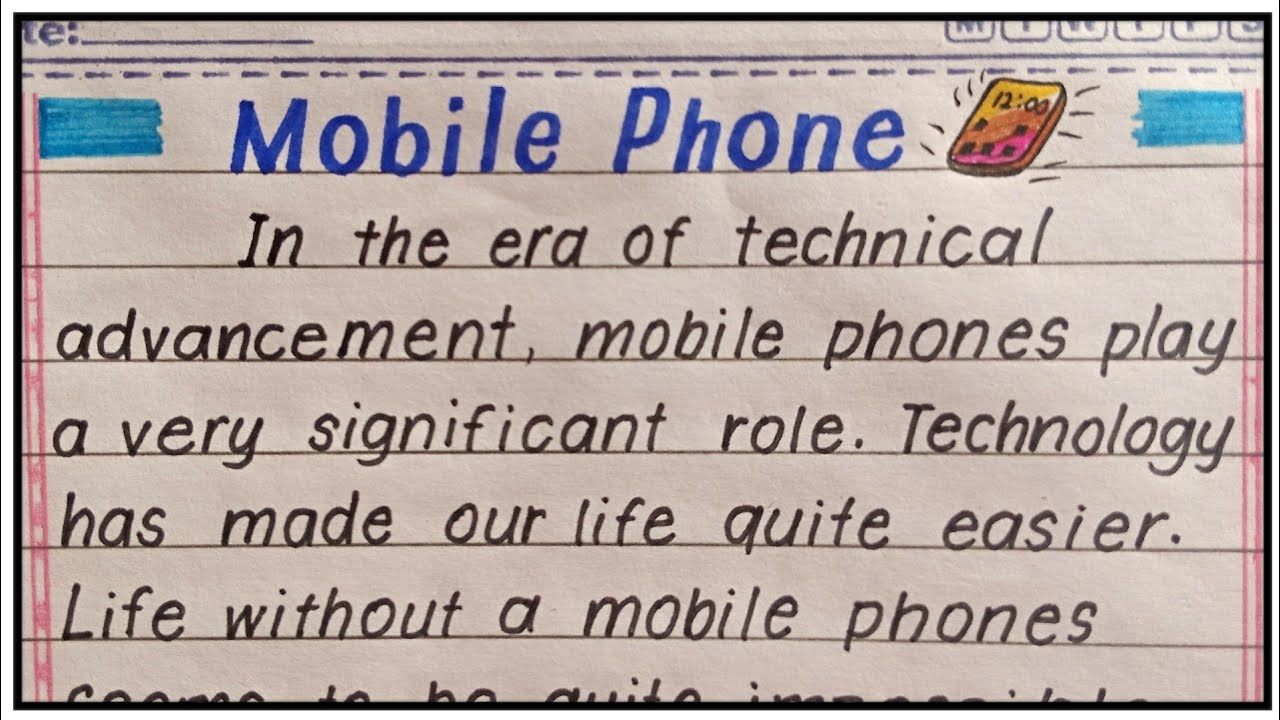 te:
Mobile Phone
12:00
In the era of technical
advancement, mobile phones play
a very significant role. Technology
has made our life quite easier.
Life without a mobile phones
seems to be quite impossible